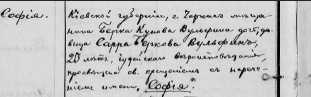 Софія.
Кіевской губерніи, г. Черкасъ мѣща-
нина Берка Вульфина дочь, дѣ-
вица Сарра Беркова Вульфинъ,
лѣтъ, іудейскаго вѣроисповѣданія,
просвѣщена св. крещеніемъ съ нарече-
ніемъ имени, "Софія".